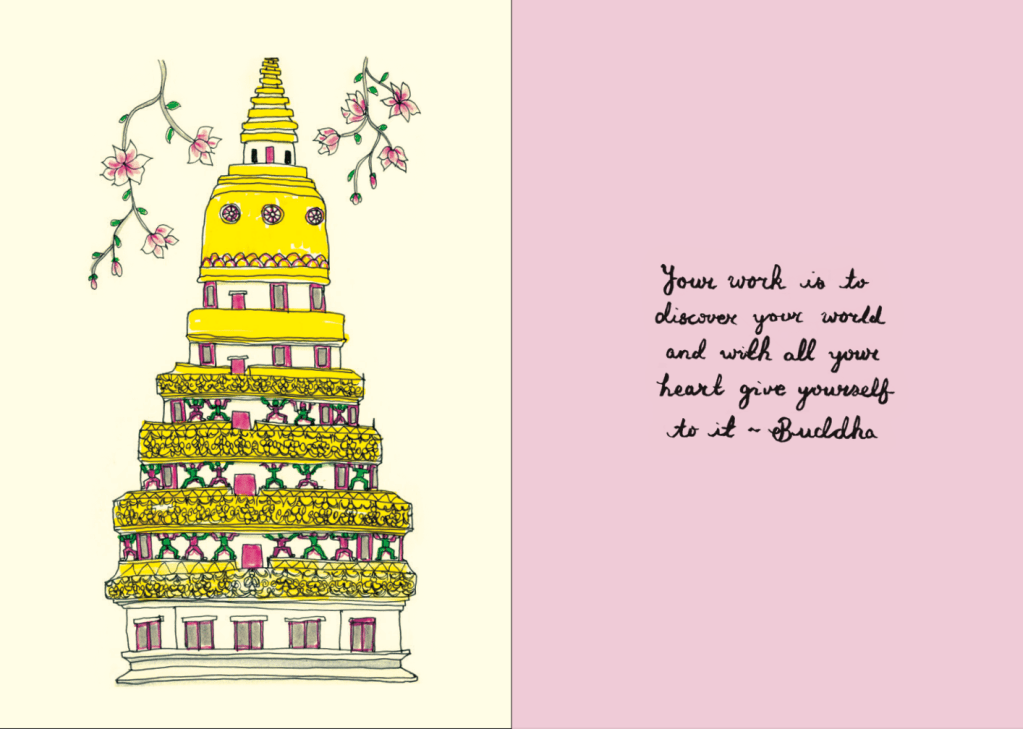 Your work is to
discover your world
and with all your
heart give yourself
to it ~ Buddha